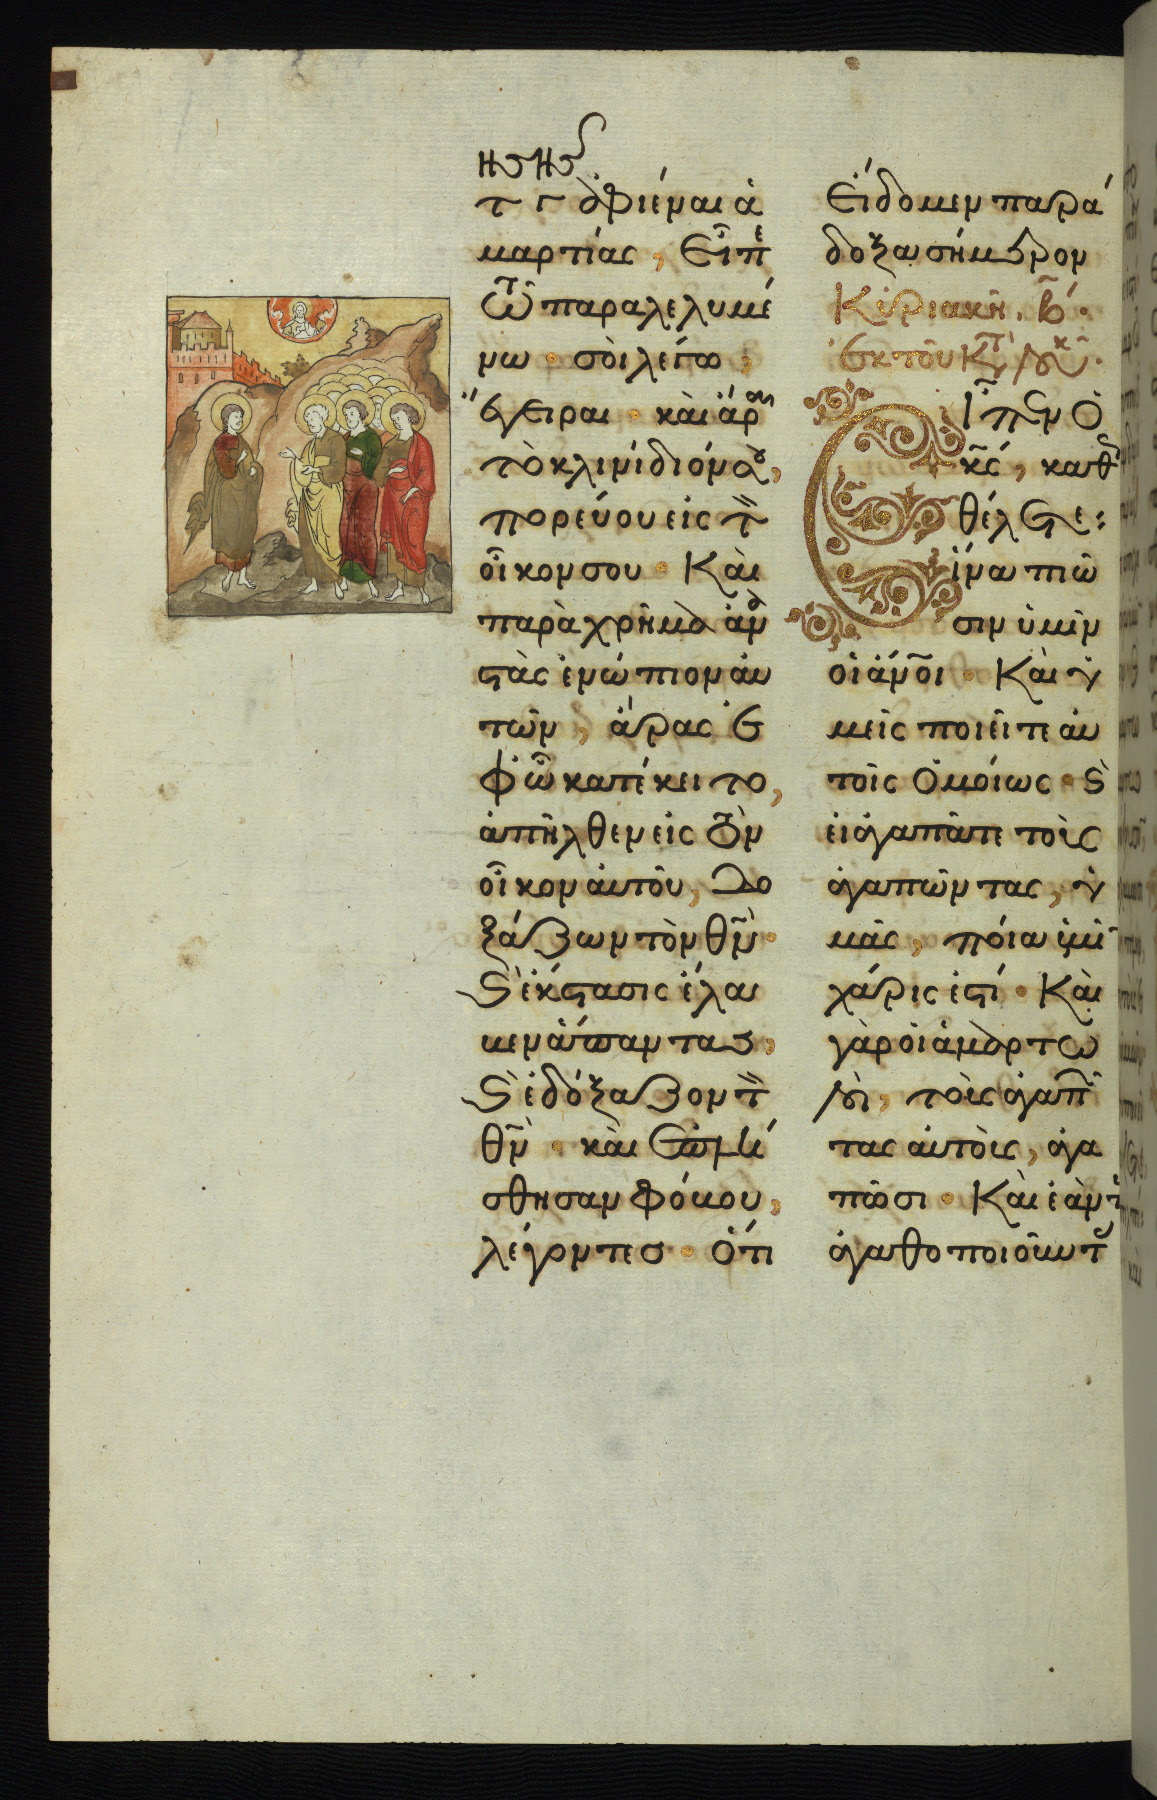 τῆς γῆς
ἀφιέναι ἁ
μαρτίας, εἶπε
τῷ παραλελυμέ
νω· σοὶ λέγω,
ἔγειραι· καὶ ἄρας
τὸ κλινίδιόν σου,
πορεύου εἰς τὸν
οἶκον σου· Καὶ
παρὰχρῆμα ἀνα
στὰς ἐνώπιον αὐ
τῶν, ἄρας ἐ
φ' ὧ κατέκειτο,
ἀπῆλθεν εἰς τὸν
οἶκον αὐτοῦ, δο
ξάζων τὸν θν̄·
καὶ ἔκστασις ἔλα
βεν ἅπαντας,
καὶ ἐδόξαζον τὸν
θν̄· καὶ ἐπλή
σθησαν φόβου,
λέγοντες· ὅτι
εἴδομεν παρά
δοξα σήμερον
Κυριακῆ. β̄.
ἐκ τοῦ κατὰ λουκᾶν.
Εἶπεν ὁ
κς̄, καθὼς
θέλετε:
ἵνα ποιῶ
σιν ὑμῖν
οἱ ἄνοι· Καὶ ὑ
μεῖς ποιεῖτε αὐ
τοῖς ὁμοίως· καὶ
εἰ ἀγαπᾶτε τοὺς
ἀγαπῶντας, ὑ
μᾶς, ποία ὑμῖν
χάρις ἐστί· Καὶ
γὰρ οἱ ἁμαρτω
λοὶ, τοὺς ἀγαπῶν
τας αὐτοὺς, ἀγα
πῶσι· Καὶ ἐὰν
ἀγαθοποιῆτε τοὺς